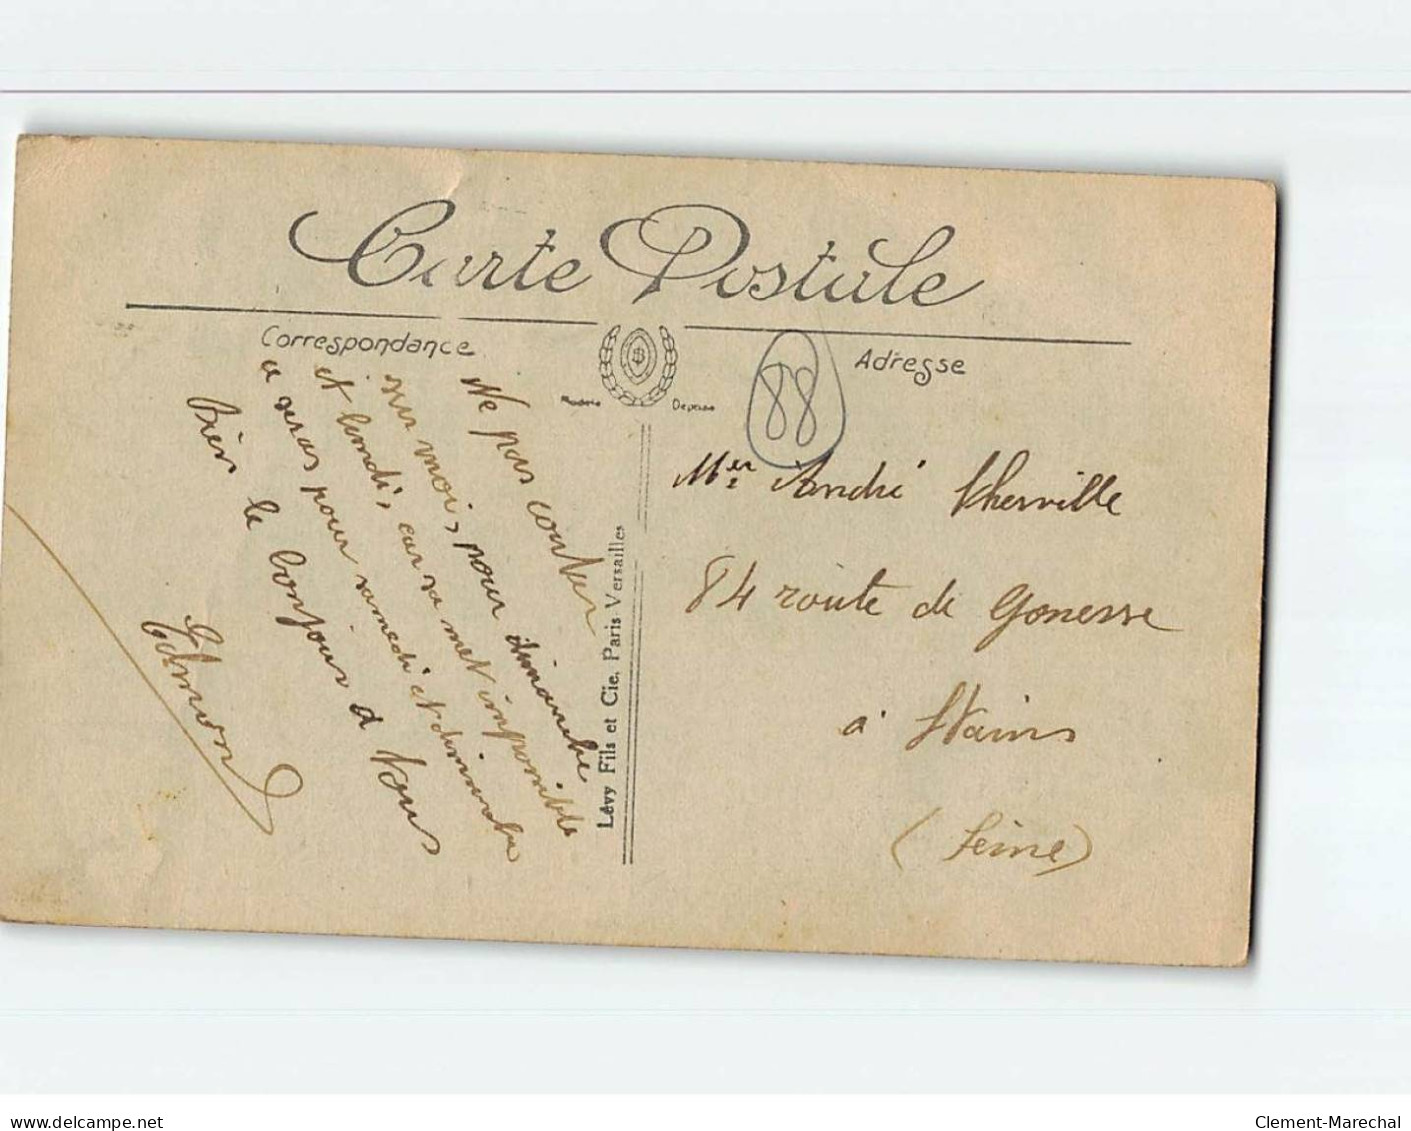 Carte Postale
Correspondance
Adresse
88
Ne pas conter
sur moi, pour dimanche
et lundi, car sa met impossible
a seras pour samedi et dimanche
Bien le bonjour a tous
Edmond
Lévy Fils et Cie. Paris-Versailles
Mr André Therville
84 route de Gonesse
à Stains
(Seine)
www.delcampe.net
Clement-Marechal